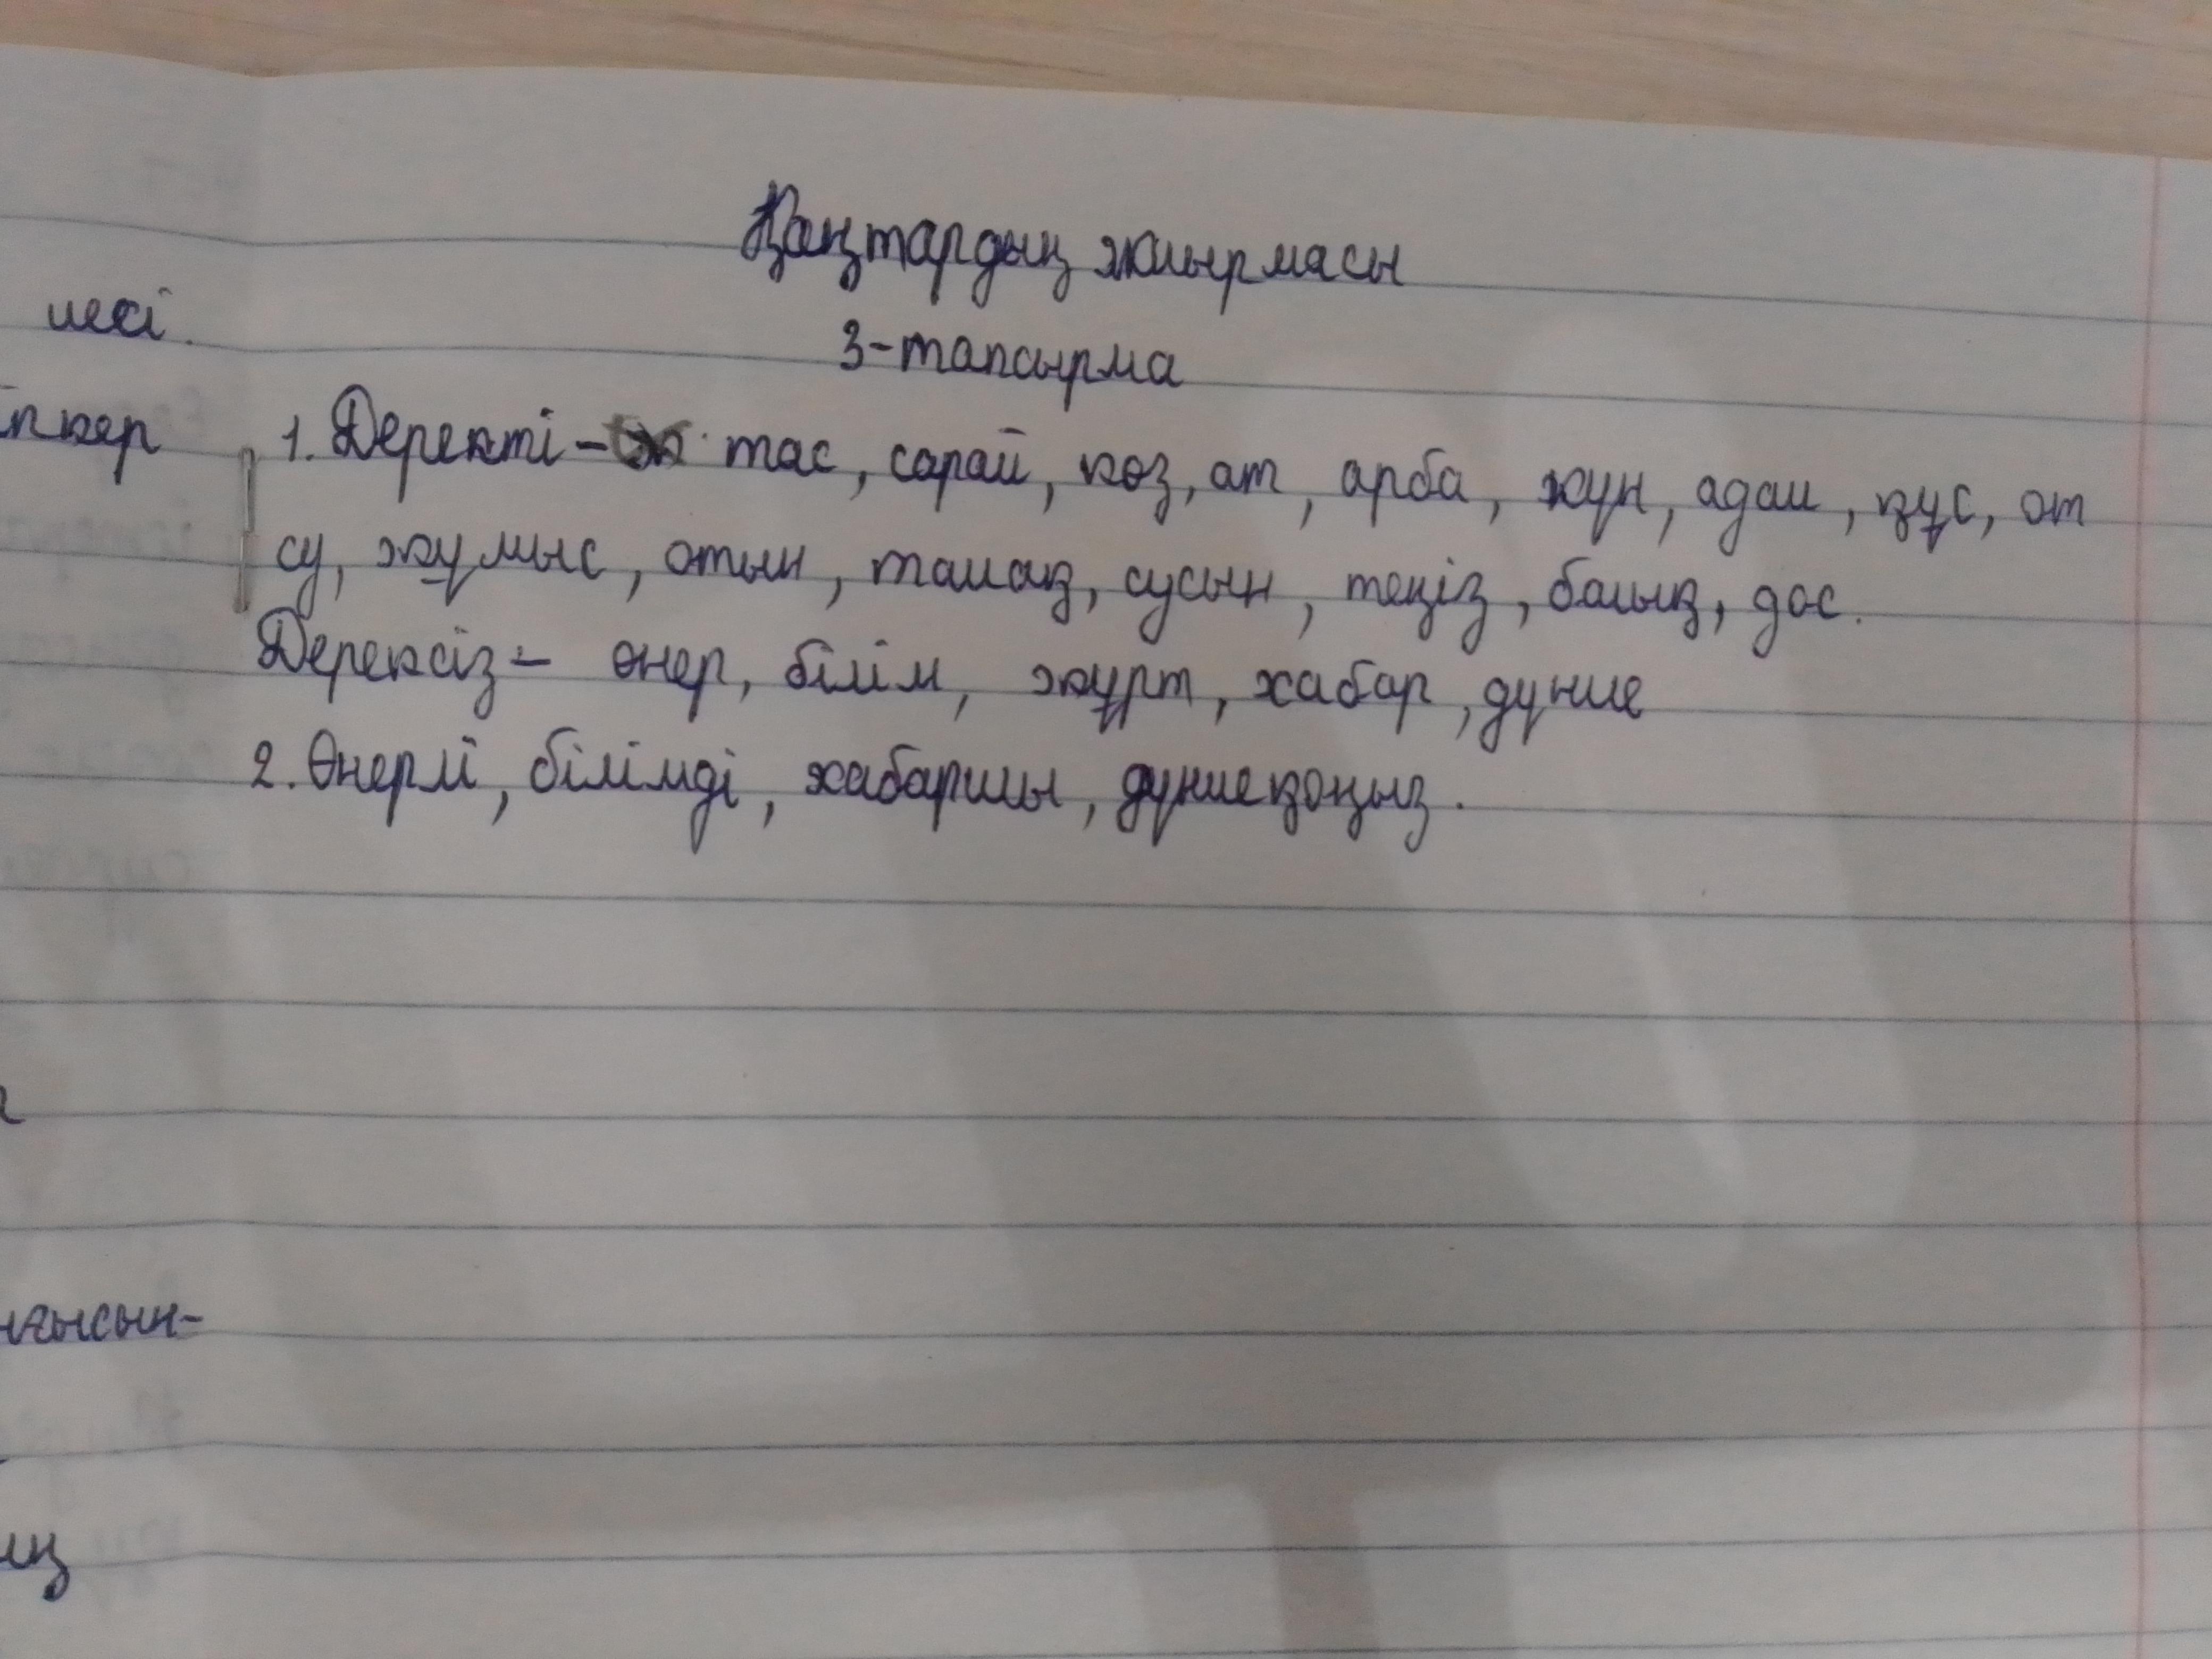 Қаңтардың жиырмасы
3-тапсырма
1. Деректі - тас, сарай, көз, ат, арба, жүн, адам, құс, от
су, жұмыс, отын, тамақ, сусын, теңіз, балық, дос.
Дерексіз - өнер, білім, жұрт, хабар, дүние
2. Өнерлі, білімді, хабаршы, дүниеқоңыз.
иесі.